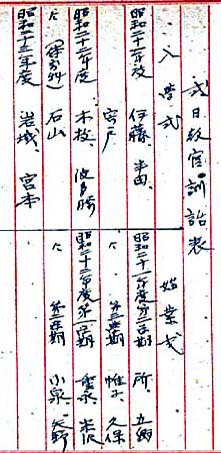 式日教官訓話表
入学式
昭和二十一年度 伊藤
宍戸
昭和二十二年度 本校 波多勝
〃 (保分the) 石山
昭和二十三年度 岩城 宮本
始業式
昭和二十一年度第二学期 所 五嶋
〃 第三学期 惟子 久保
昭和二十二年度第一学期 重泉 米沢
〃 第二学期 小泉 矢野